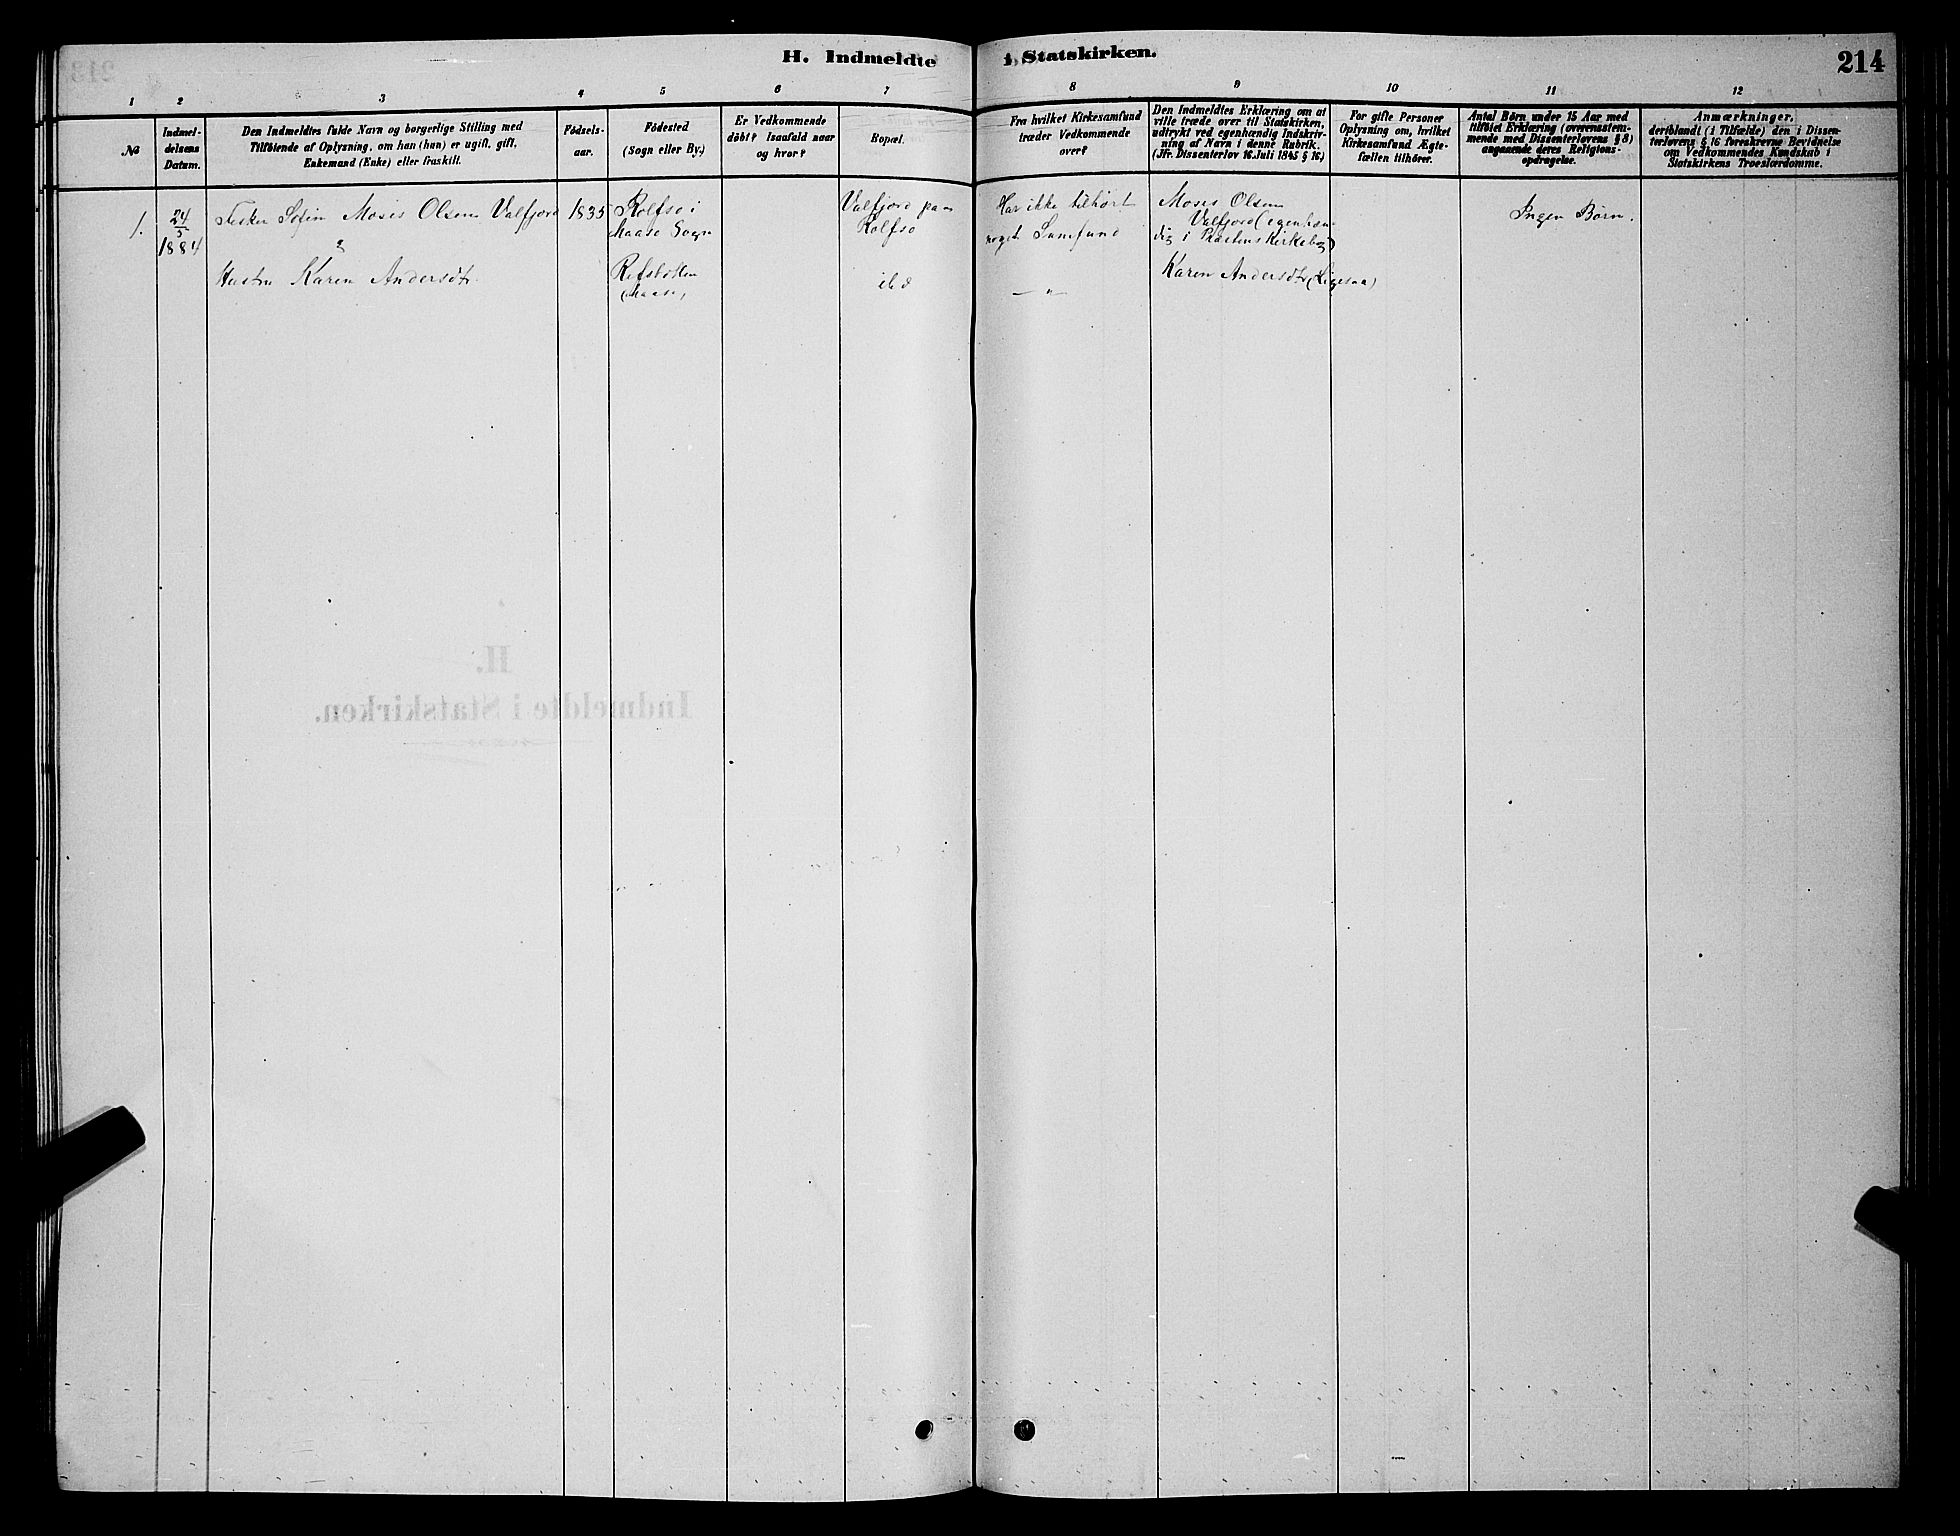 H. Indmeldte i Statskirken.
214
1 2 3 4 5 6 7 8 9 10 11 12
№
Indmel-
delsens
Datum.
Den Indmeldtes fulde Navn og borgerlige Stilling med
Tilføiende af Oplysning, om han (hun) er ugift, gift,
Enkemand (Enke) eller fraskilt.
Fødsels-
aar.
Fødested
(Sogn eller By.)
Er Vedkommende
døbt? Isaafald naar
og hvor?
Bopæl.
Fra hvilket Kirkesamfund
træder Vedkommende
over?
Den Indmeldtes Erklæring om at
ville træde over til Statskirken,
udtrykt ved egenhændig Indskriv-
ning af Navn i denne Rubrik.
(Jfr. Dissenterlov 16. Juli 1845 § 16.)
For gifte Personer
Oplysning om, hvilket
Kirkesamfund Ægte-
fællen tilhører.
Antal Børn under 15 Aar med
tilføiet Erklæring (overensstem-
mende med Dissenterlovens § 8)
angaaende deres Religions-
opdragelse.
Anmærkninger,
deriblandt (i Tilfælde) den i Dissen-
terlovens § 16 foreskrevne Bevidnelse
om Vedkommendes Kundskab i
Statskirkens Troeslærdomme.
1.
24/5
1884
Fisker Søfin Moses Olsen Valfjord
1835
Rolfsø i
Maasø Sogn
Valfjord paa
Rolfsø
Har ikke tilhørt
noget Samfund
Moses Olsen
Valfjord (egenhæn-
dig i Præstens Kirkebog)
Ingen Børn.
Hustru Karen Andersdtr.
Refsbotten
(Maasø)
ibd
— " —
Karen Andersdtr (Ligesaa)
H.
Indmeldte i Statskirken.